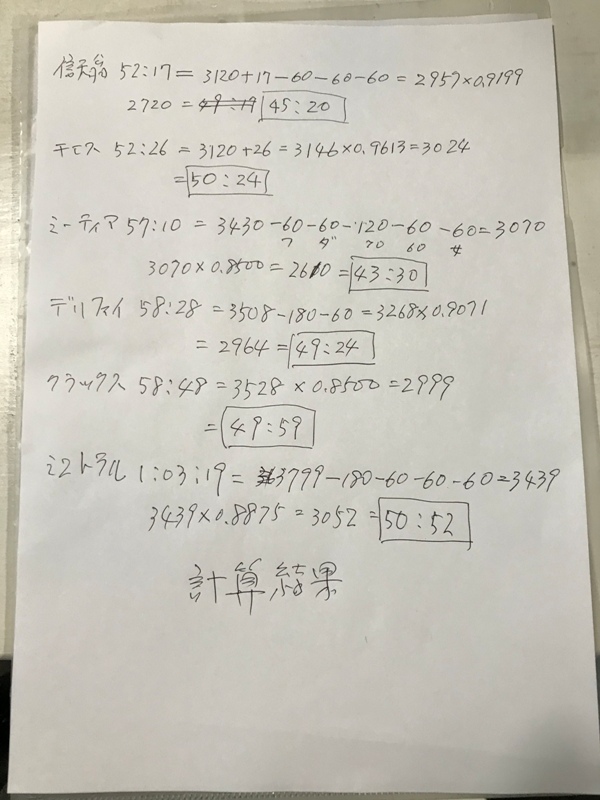 信天翁 52:17 = 3120+17-60-60-60 = 2957×0.9199
2720 = 49:19 45:20
テモス 52:26 = 3120+26 = 3146×0.9613=3024
= 50:24
ミーティア 57:10 = 3430-60-60-120-60-60=3070
フ ダ 70 60
3070×0.8500 = 2610 = 43:30
デルファイ 58:28 = 3508-180-60=3268×0.9071
= 2964 = 49:24
クラックス 58:48 = 3528 × 0.8500 = 2999
= 49:59
ミストラル 1:03:19 = 3799-180-60-60-60=3439
3439×0.8875 = 3052 = 50:52
計算結果